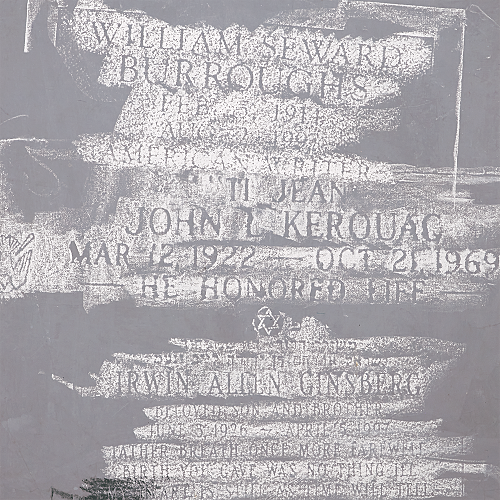 WILLIAM SEWARD
BURROUGHS
FEB 5, 1914
AUG 2, 1997
AMERICAN WRITER
"TI JEAN"
JOHN L. KEROUAC
MAR 12, 1922 — OCT. 21, 1969
HE HONORED LIFE
IRWIN ALLEN GINSBERG
BELOVED SON AND BROTHER
JUNE 3, 1926 APRIL 5, 1997
FATHER BREATH ONCE MORE FAREWELL
BIRTH YOU GAVE WAS NO THING ILL
MY HEART IS STILL AS TIME WILL TELL